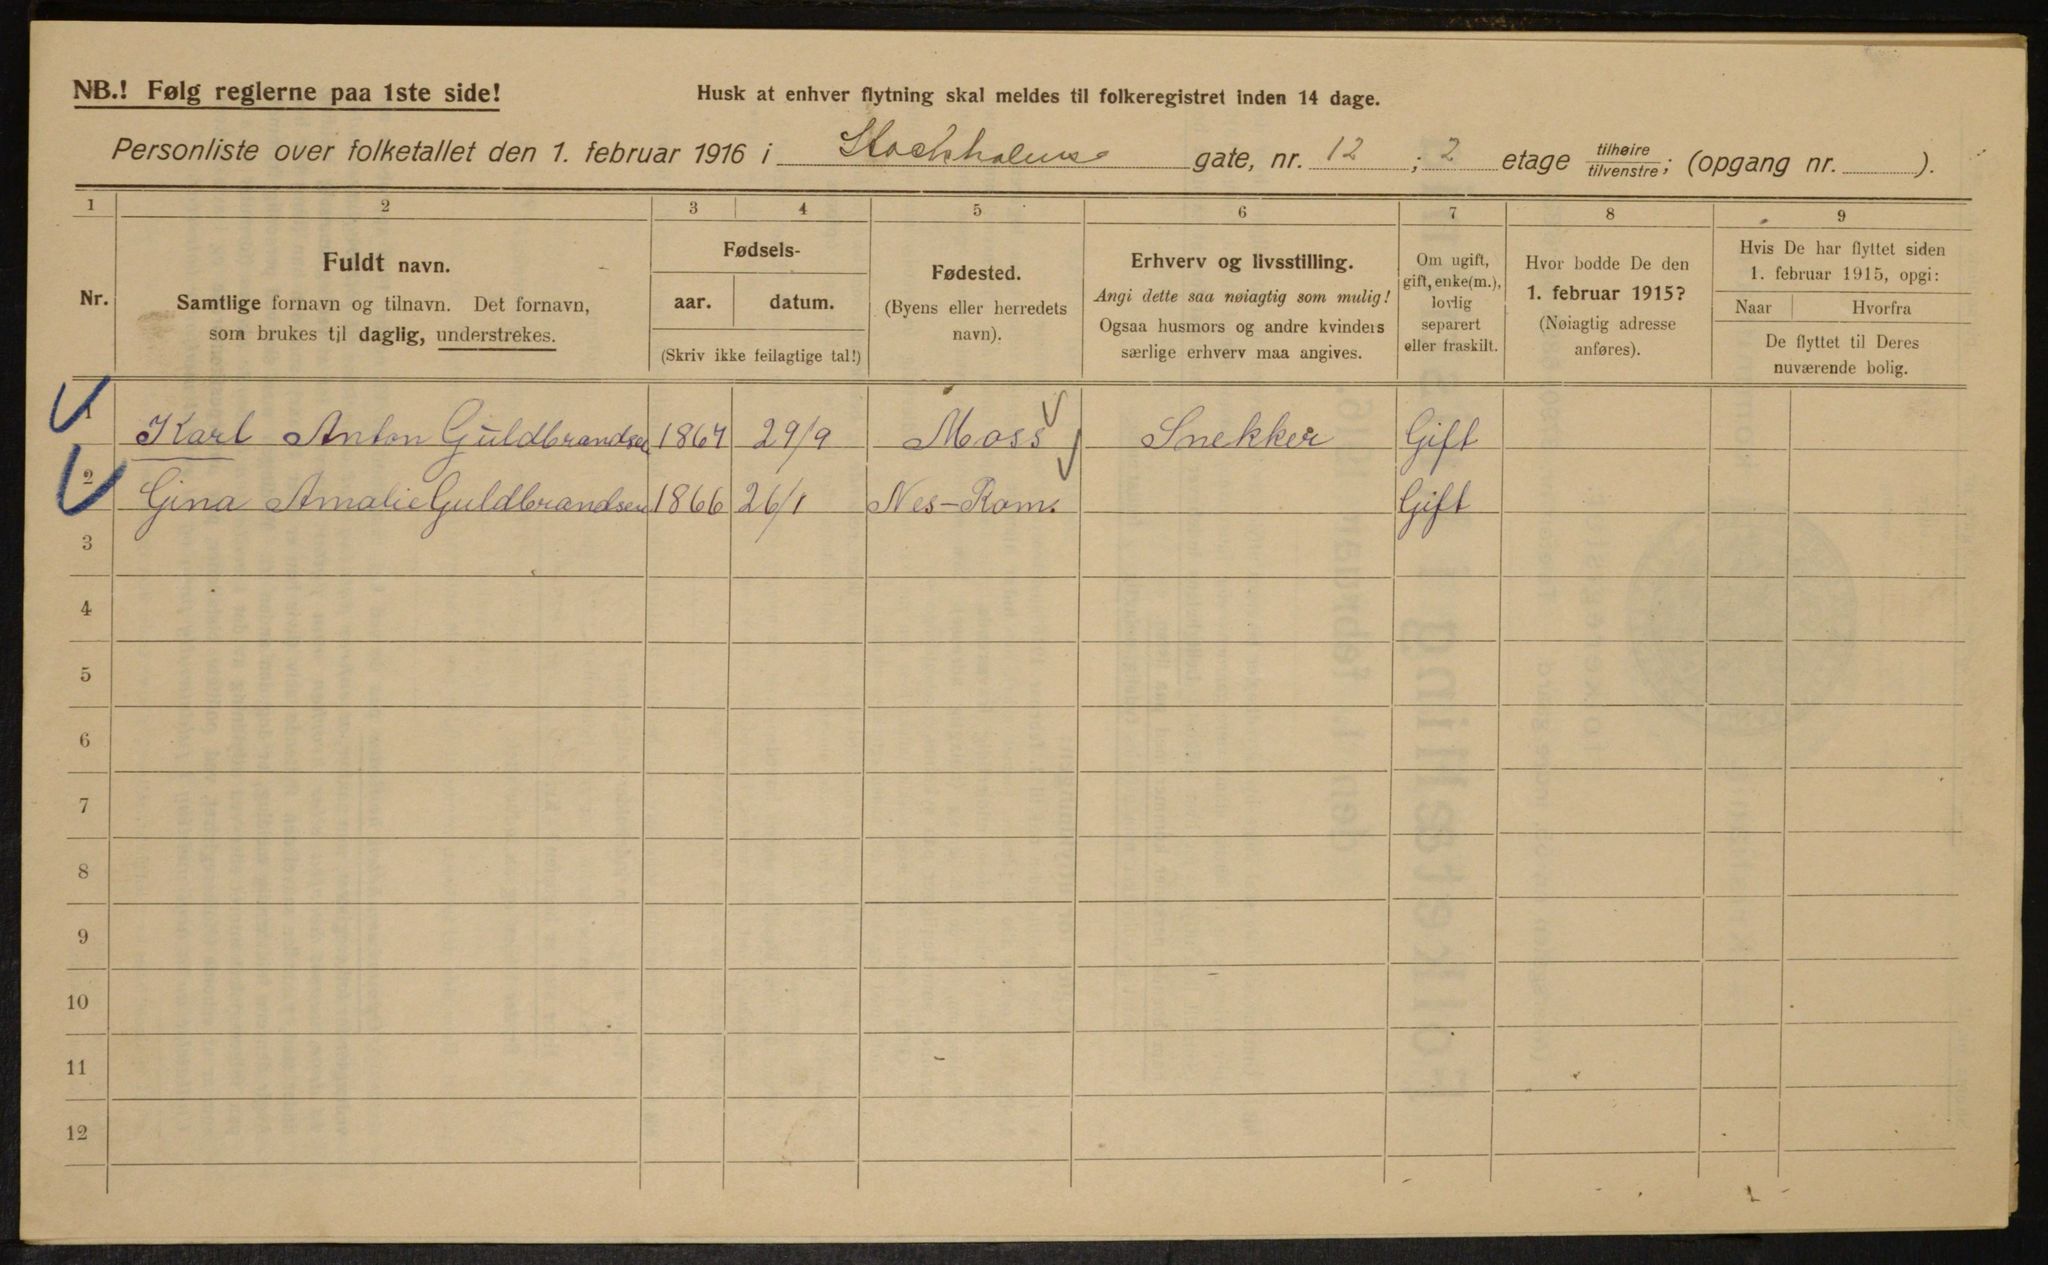 NB.! Følg reglerne paa 1ste side!
Husk at enhver flytning skal meldes til folkeregistret inden 14 dage.
Personliste over folketallet den 1. februar 1916 i Stockholms gate, nr. 12; 2 etage tilhøire/tilvenstre; (opgang nr. ).
1 2 3 4 5 6 7 8 9
Nr.
Fuldt navn.
Samtlige fornavn og tilnavn. Det fornavn,
som brukes til daglig, understrekes.
Fødsels-
aar. datum.
(Skriv ikke feilagtige tal!)
Fødested.
(Byens eller herredets
navn).
Erhverv og livsstilling.
Angi dette saa nøiagtig som mulig!
Ogsaa husmors og andre kvinders
særlige erhverv maa angives.
Om ugift,
gift, enke(m.),
lovlig
separert
eller fraskilt.
Hvor bodde De den
1. februar 1915?
(Nøiagtig adresse
anføres).
Hvis De har flyttet siden
1. februar 1915, opgi:
Naar Hvorfra
De flyttet til Deres
nuværende bolig.
1 Karl Anton Guldbrandsen 1864 29/9 Moss Snekker Gift
2 Gina Amalie Guldbrandsen 1866 26/1 Nes-Rom. Gift
3
4
5
6
7
8
9
10
11
12